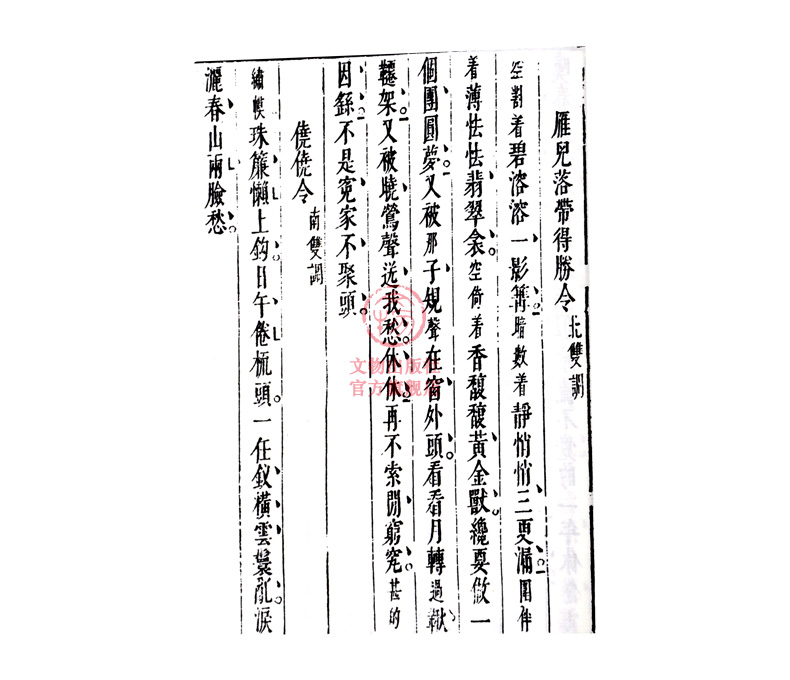 雁兒落帶得勝令北雙調
空割着碧溶溶一影篝暗數着靜悄悄三更漏閒伴
着薄怯怯翡翠衾空倚着香馥馥黃金獸纔要做一
個團圓夢又被那子規聲在窗外頭看看月轉過鞦
韆架又被曉鶯聲送我愁休休再不索閒窮究甚的
因繇不是冤家不聚頭
僥僥令南雙調
繡幙珠簾懶上鈎日午倦梳頭一任釵橫雲鬟亂淚
灑春山兩臉愁
文物出版社
官方旗舰店